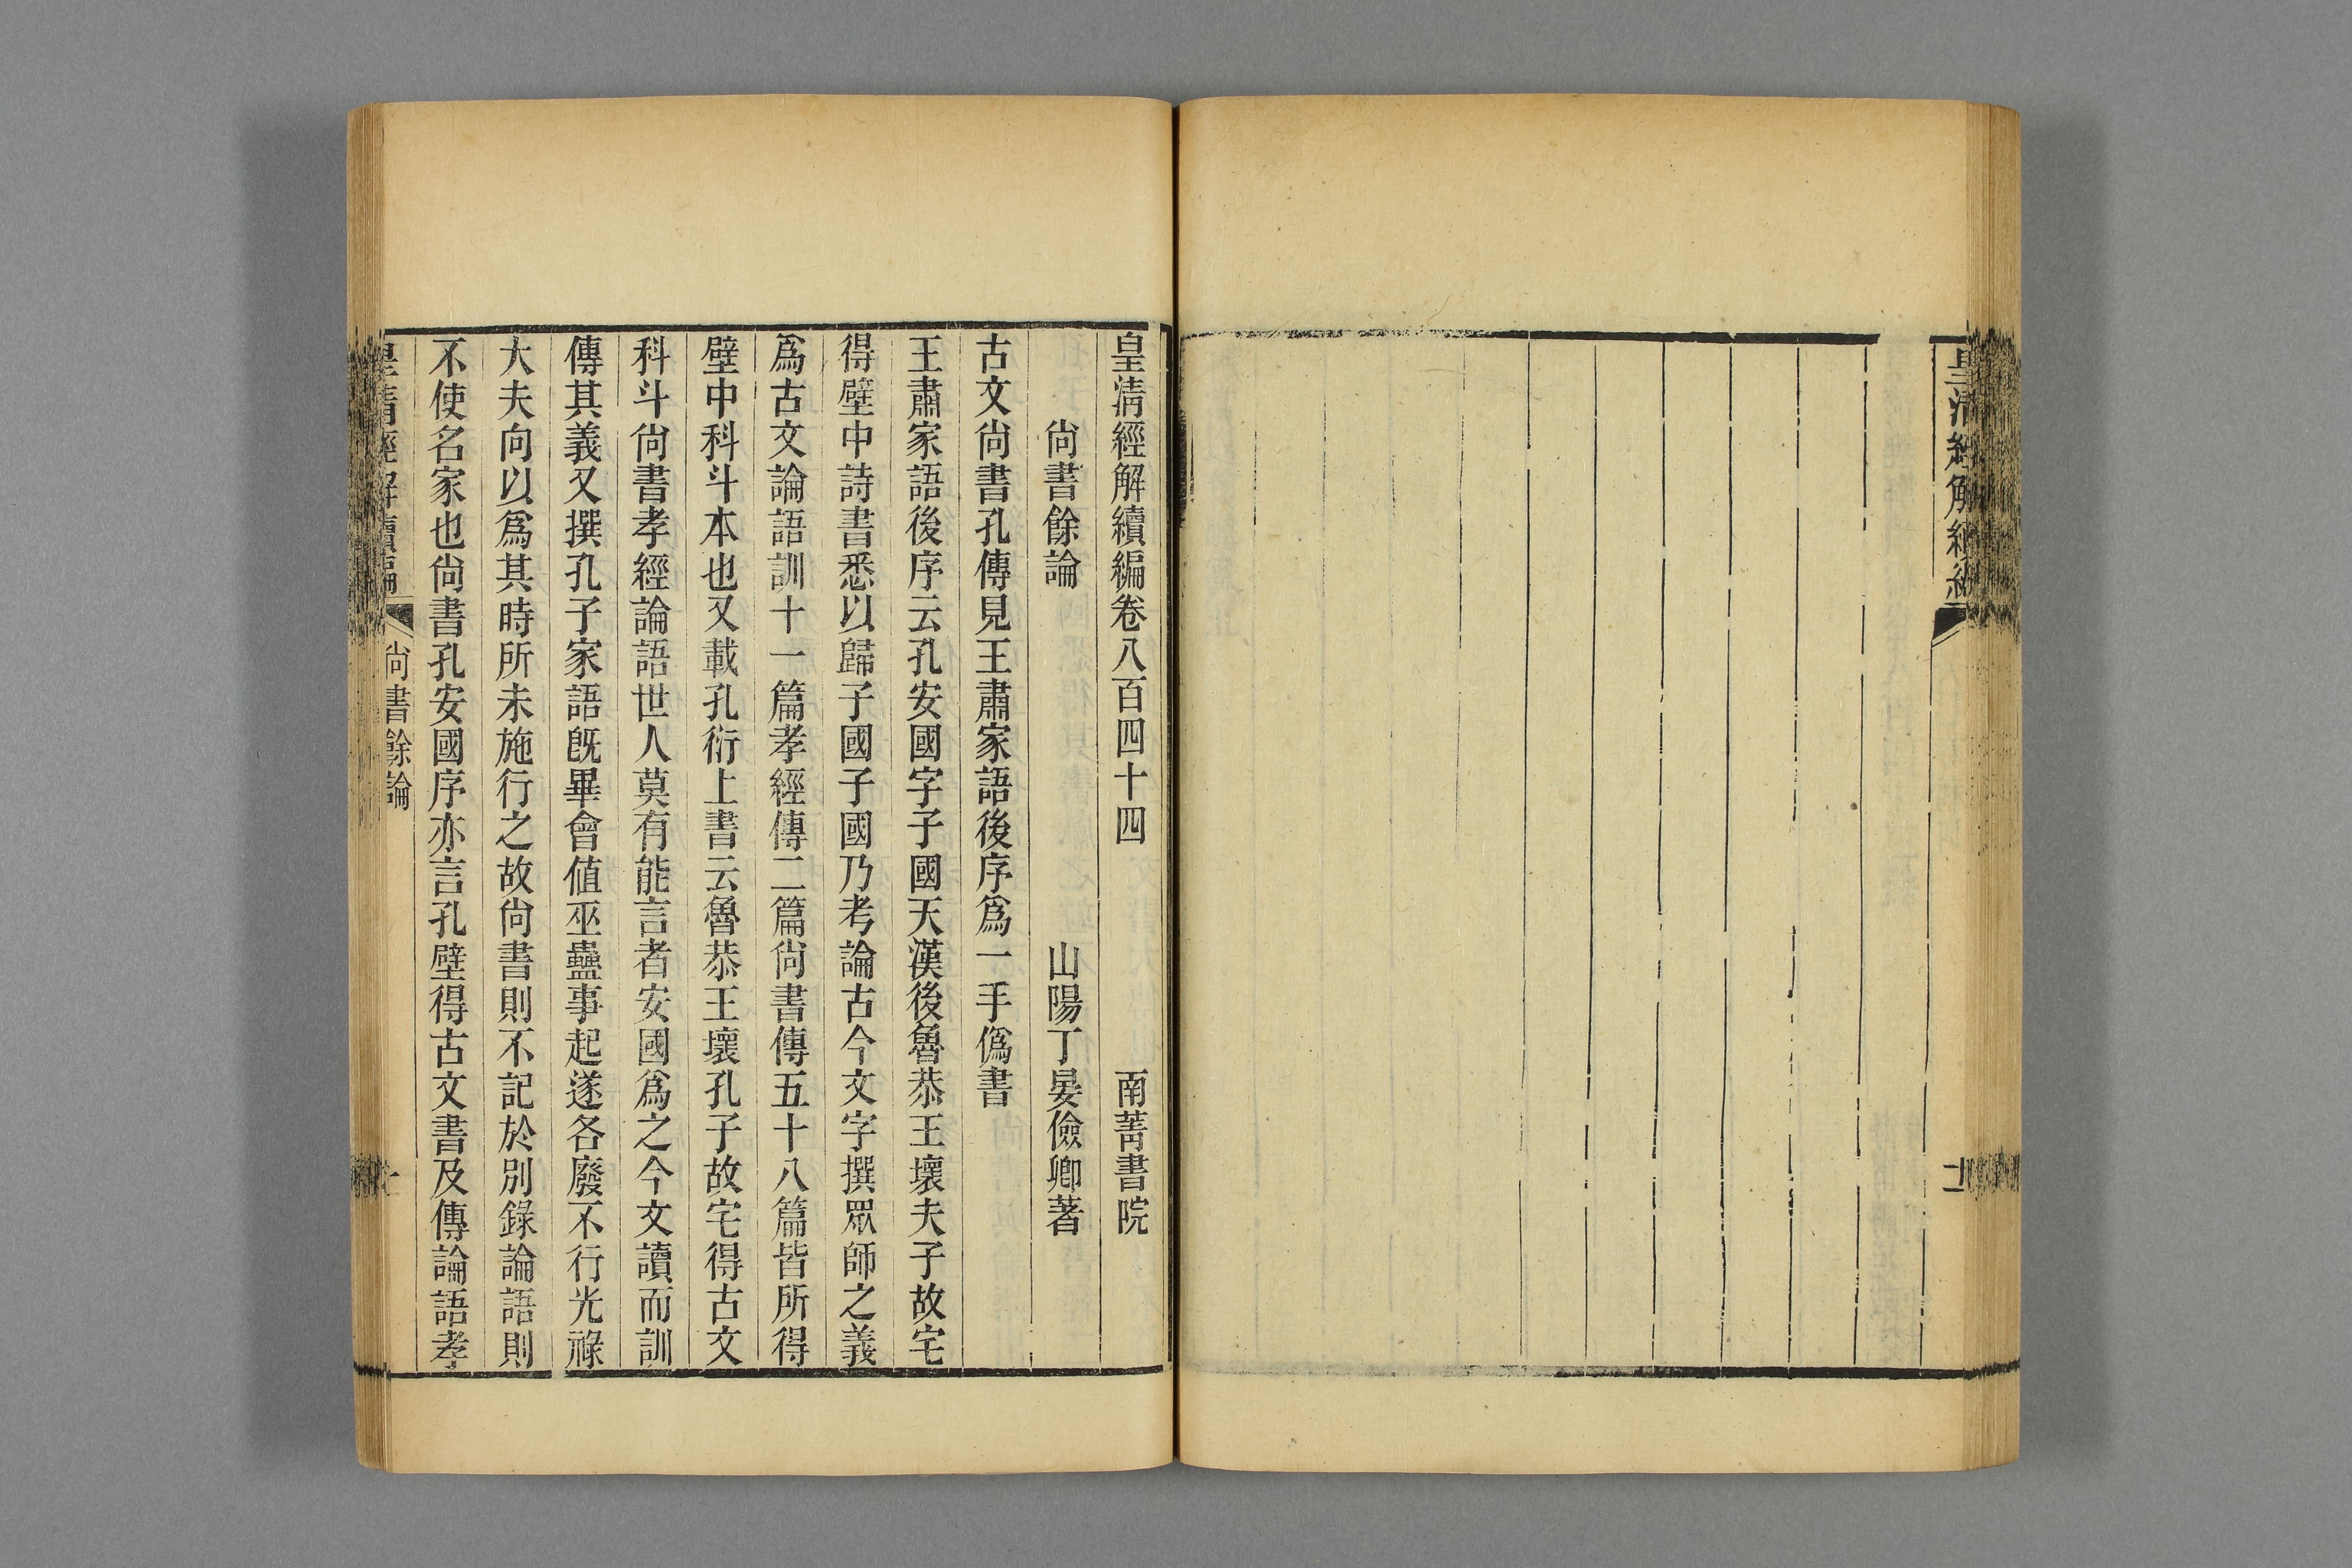 皇清經解續編
十二
皇清經解續編卷八百四十四 南菁書院
尙書餘論 山陽丁晏儉卿著
古文尙書孔傳見王肅家語後序爲一手僞書
王肅家語後序云孔安國字子國天漢後魯恭王壞夫子故宅
得壁中詩書悉以歸子國子國乃考論古今文字撰眾師之義
爲古文論語訓十一篇孝經傳二篇尙書傳五十八篇皆所得
壁中科斗本也又載孔衍上書云魯恭王壞孔子故宅得古文
科斗尙書孝經論語世人莫有能言者安國爲之今文讀而訓
傳其義又撰孔子家語旣畢會值巫蠱事起遂各廢不行光祿
大夫向以爲其時所未施行之故尙書則不記於別錄論語則
不使名家也尙書孔安國序亦言孔壁得古文書及傳論語孝
皇清經解續編 尙書餘論